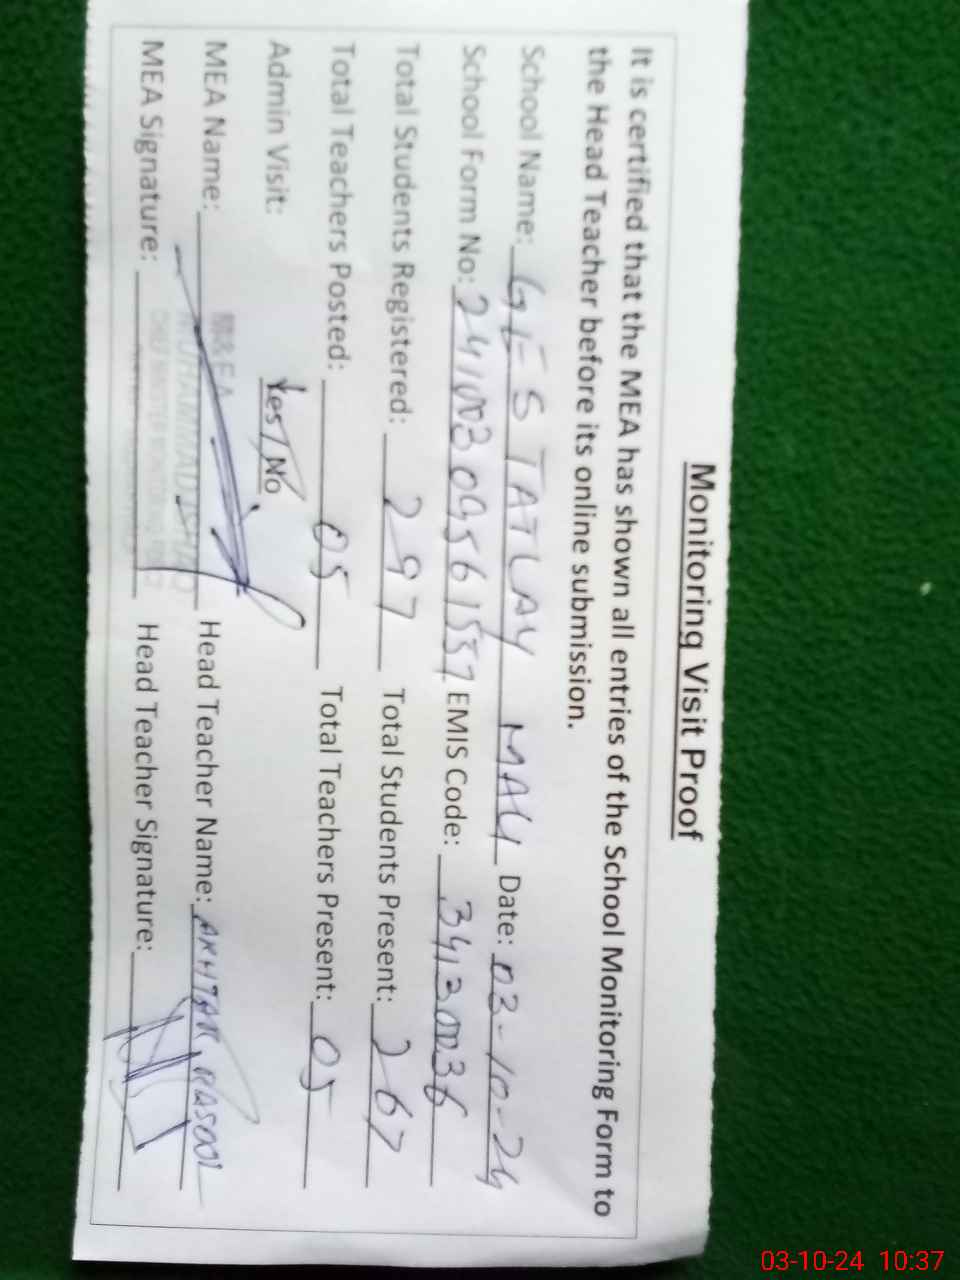 Monitoring Visit Proof
It is certified that the MEA has shown all entries of the School Monitoring Form to
the Head Teacher before its online submission.
School Name: GES TATLAY MALI Date: 03-10-24
School Form No: EMIS Code: 34130036
Total Students Registered: 297 Total Students Present: 267
Total Teachers Posted: 05 Total Teachers Present: 05
Admin Visit: Yes/No
MEA Name: MUHAMMAD Head Teacher Name: AKHTAR RASOOL
MEA Signature: Head Teacher Signature:
03-10-24 10:37